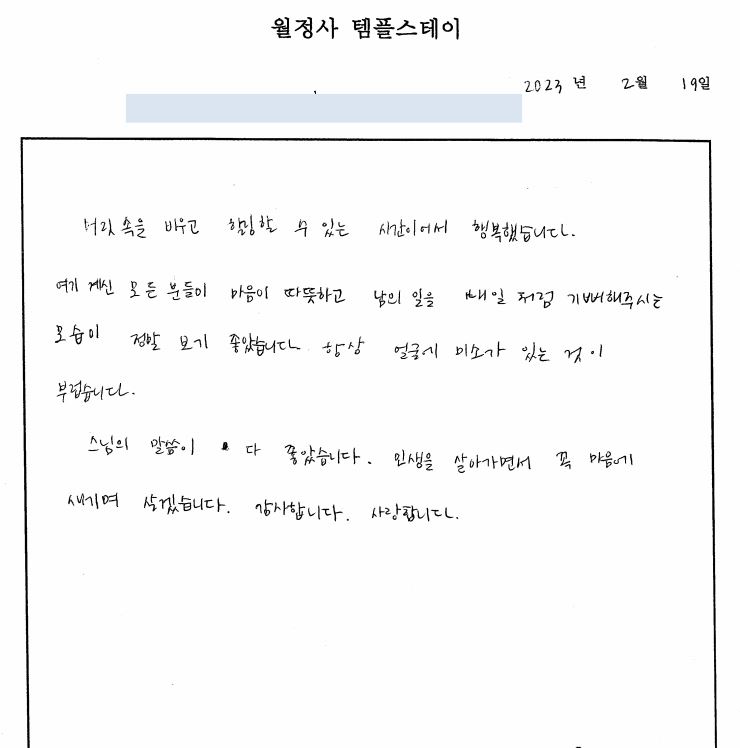 월정사 템플스테이
2023 년 2월 19일
머릿 속을 비우고 힐링할 수 있는 시간이어서 행복했습니다.
여기 계신 모든 분들이 마음이 따뜻하고 남의 일을 내일 처럼 기뻐해주시는
모습이 정말 보기 좋았습니다 항상 얼굴에 미소가 있는 것이
부럽습니다.
스님의 말씀이 다 좋았습니다. 인생을 살아가면서 꼭 마음에
새기며 살겠습니다. 감사합니다. 사랑합니다.